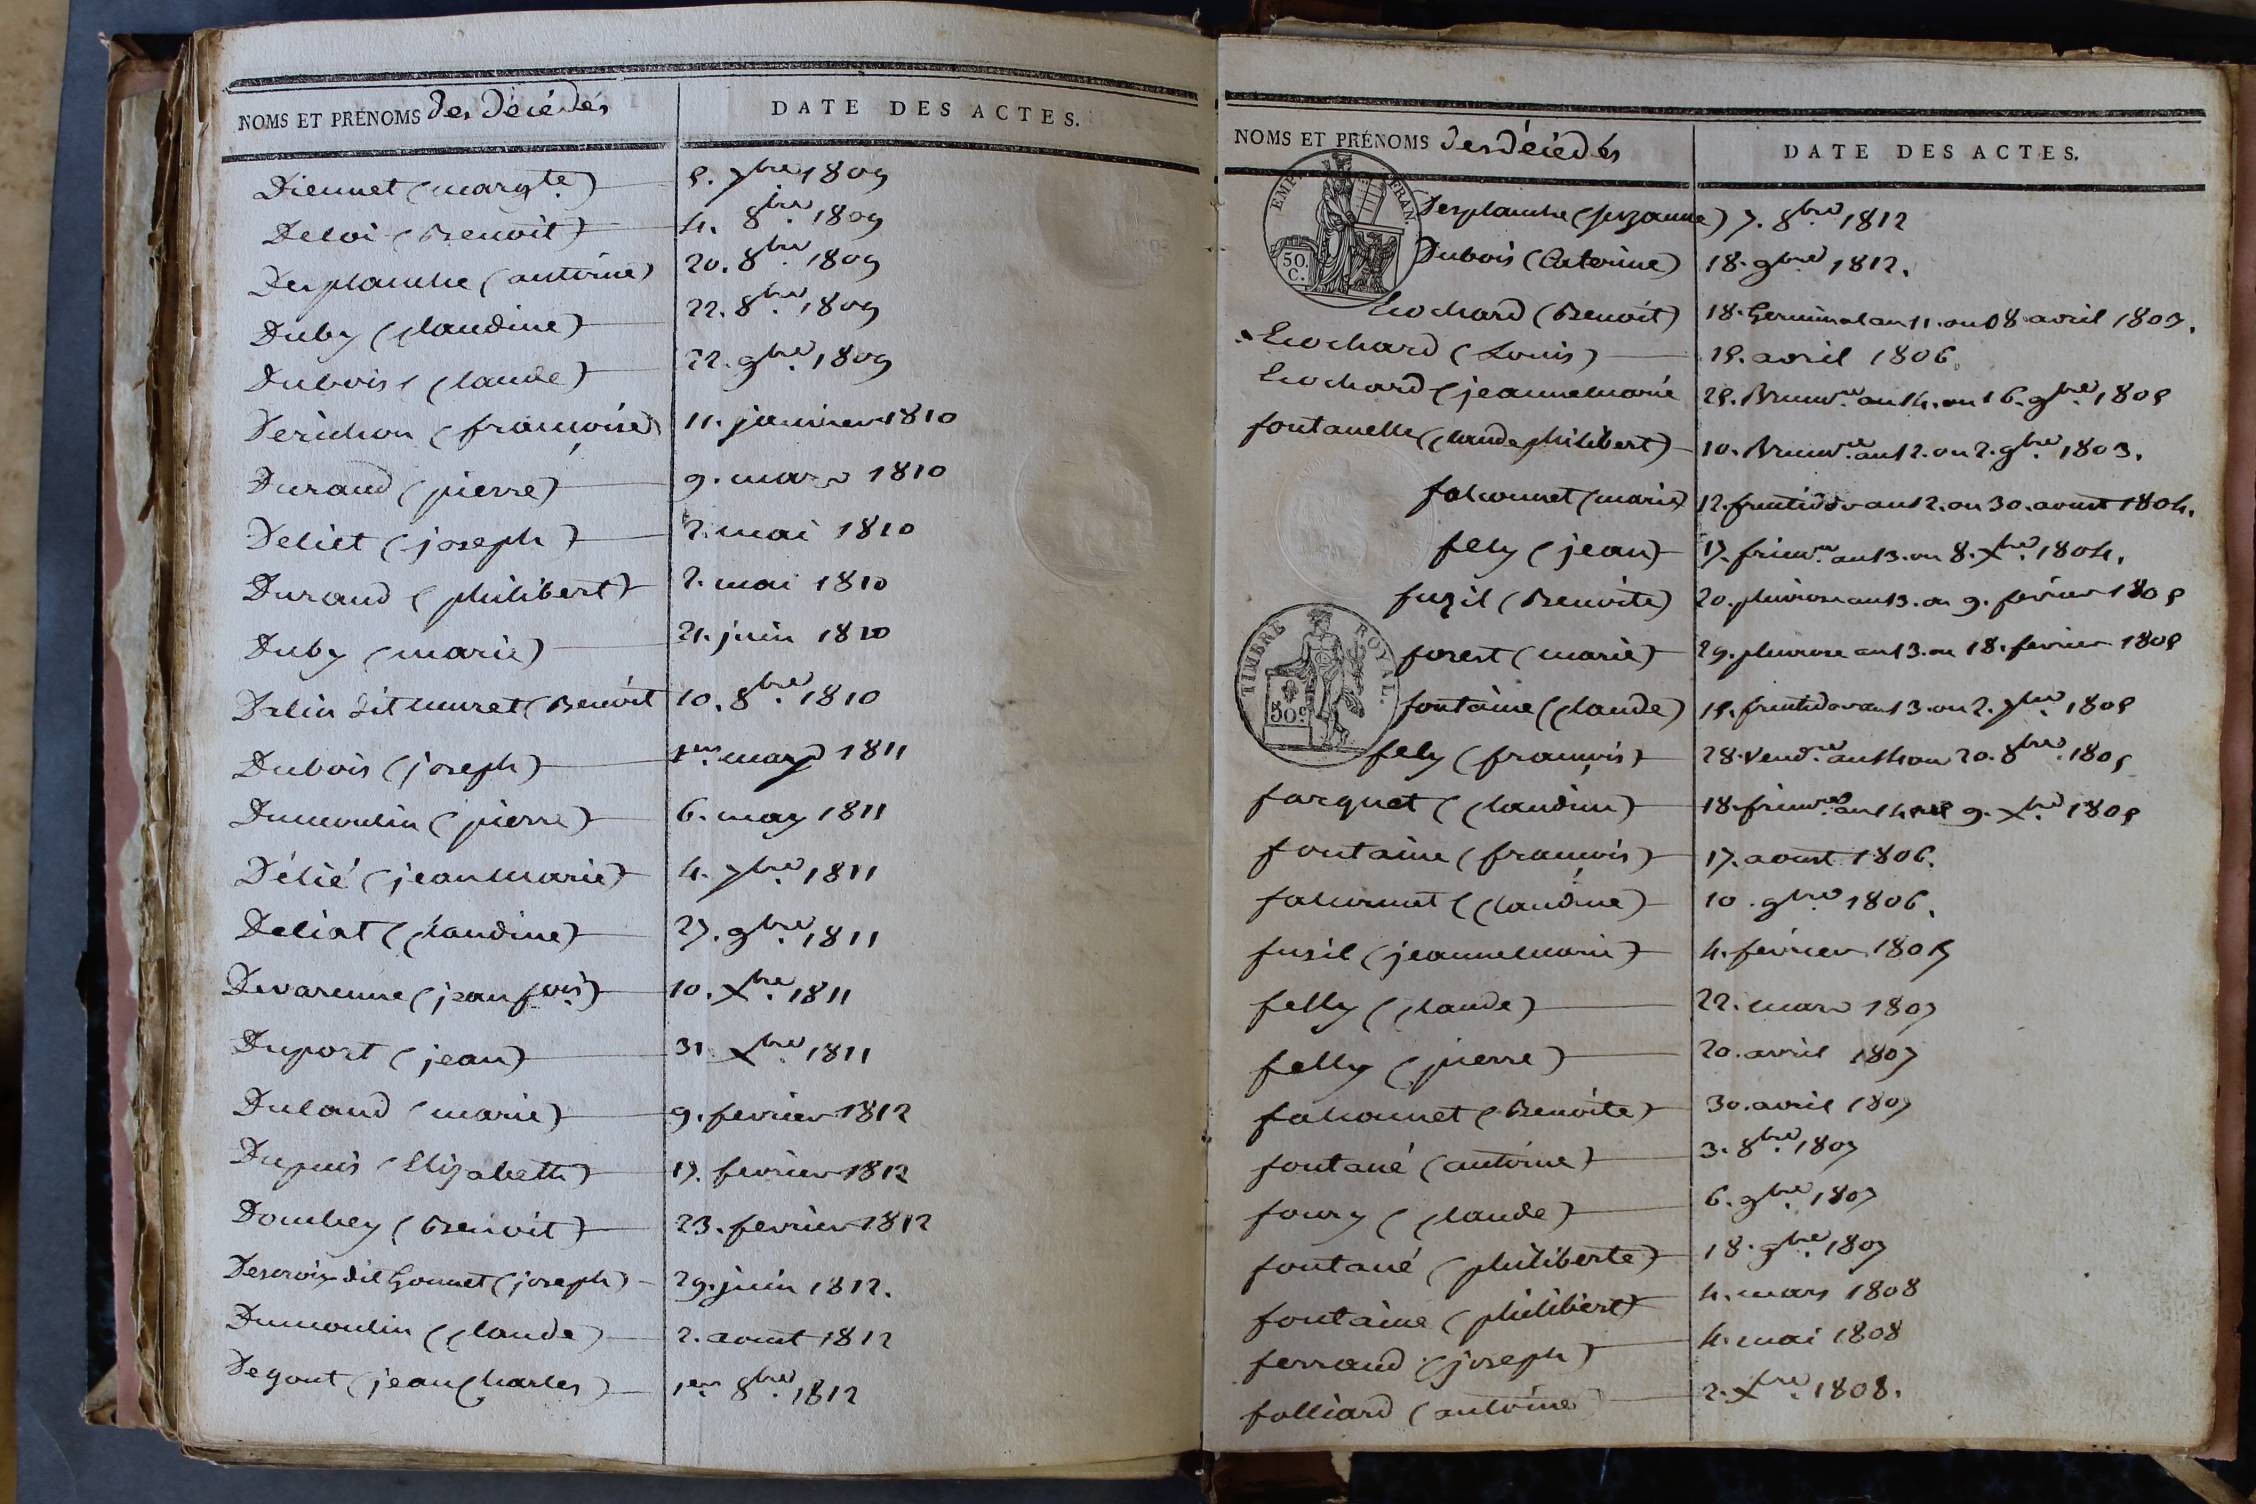 NOMS ET PRÉNOMS des décédés
DATE DES ACTES.
Diennet (margte.) 5. 7bre 1809
Deloi (Benoit) 4. 8bre. 1809
Desplanche (antoine) 20. 8bre. 1809
Duby (Claudine) 22. 8bre. 1809
Dubois (Claude) 22. 9bre. 1809
Derichon (françoise) 11. janvier 1810
Durand (pierre) 9. mars 1810
Deliet (joseph) 2. mai 1810
Durand (philibert) 2. mai 1810
Duby (marie) 21. juin 1810
dit muret (Benoit 10. 8bre. 1810
Dubois (joseph) 1er. mars 1811
Dumoulin (pierre) 6. may 1811
Délié (jean marie) 4. 7bre. 1811
Deliat (Claudine) 27. 9bre. 1811
Devarenne (jean fois.) 10. Xbre. 1811
Duport (jean) 31. Xbre. 1811
Duland (marie) 9. fevrier 1812
Dupuis (Elizabeth) 17. fevrier 1812
Dombey (Benoit) 23. fevrier 1812
Descroix dit Gonnet (joseph) 29. juin 1812.
Dumoulin (Claude) 2. aout 1812
Degout (jean Charles) 1er. 8bre. 1812
NOMS ET PRÉNOMS des décédés
DATE DES ACTES.
EMP. FRAN.
50.
C.
Desplanche (suzanne) 7. 8bre. 1812
Dubois (Caterine) 18. 9bre 1812.
Ecochard (Benoit) 18. Germinal an 11. ou 8 avril 1803.
Ecochard (Louis) 15. avril 1806.
Ecochard (jeanne marie 25. Brumre. an 14. ou 16. 9bre. 1805
fontanelle (Claude philibert) 10. Brumre. an 12. ou 2. 9bre. 1803.
falconnet (marie) 12. fructidor an 12. ou 30. aoust 1804.
fely (jean) 17. frimre. an 13. ou 8. Xbre. 1804.
fuzil (Benoite) 20. pluviose an 13. ou 9. février 1805
TIMBRE ROYAL.
50c
forest (marie) 29. pluviose an 13. ou 18. fevrier 1805
fontaine (Claude) 15. fructidor an 13. ou 2. 7bre. 1805
fely (françois) 28. Vendre. an 14 ou 20. 8bre. 1805
farguet (Claudine) 18. frimre. an 14. ou 9. Xbre. 1805
fontaine (françois) 17. aoust 1806.
falconnet (Claudine) 10. 9bre 1806.
fusil (jeanne marie) 4. février 1807
felly (Claude) 22. mars 1807
felly (pierre) 20. avril 1807
falconnet (Benoite) 30. avril 1807
fontané (antoine) 3. 8bre. 1807
foury (Claude) 6. 9bre. 1807
fontané (philiberte) 18. 9bre. 1807
fontaine (philibert) 4. mars 1808
ferrand (joseph) 4. mai 1808
folliard (antoine) 2. Xbre. 1808.